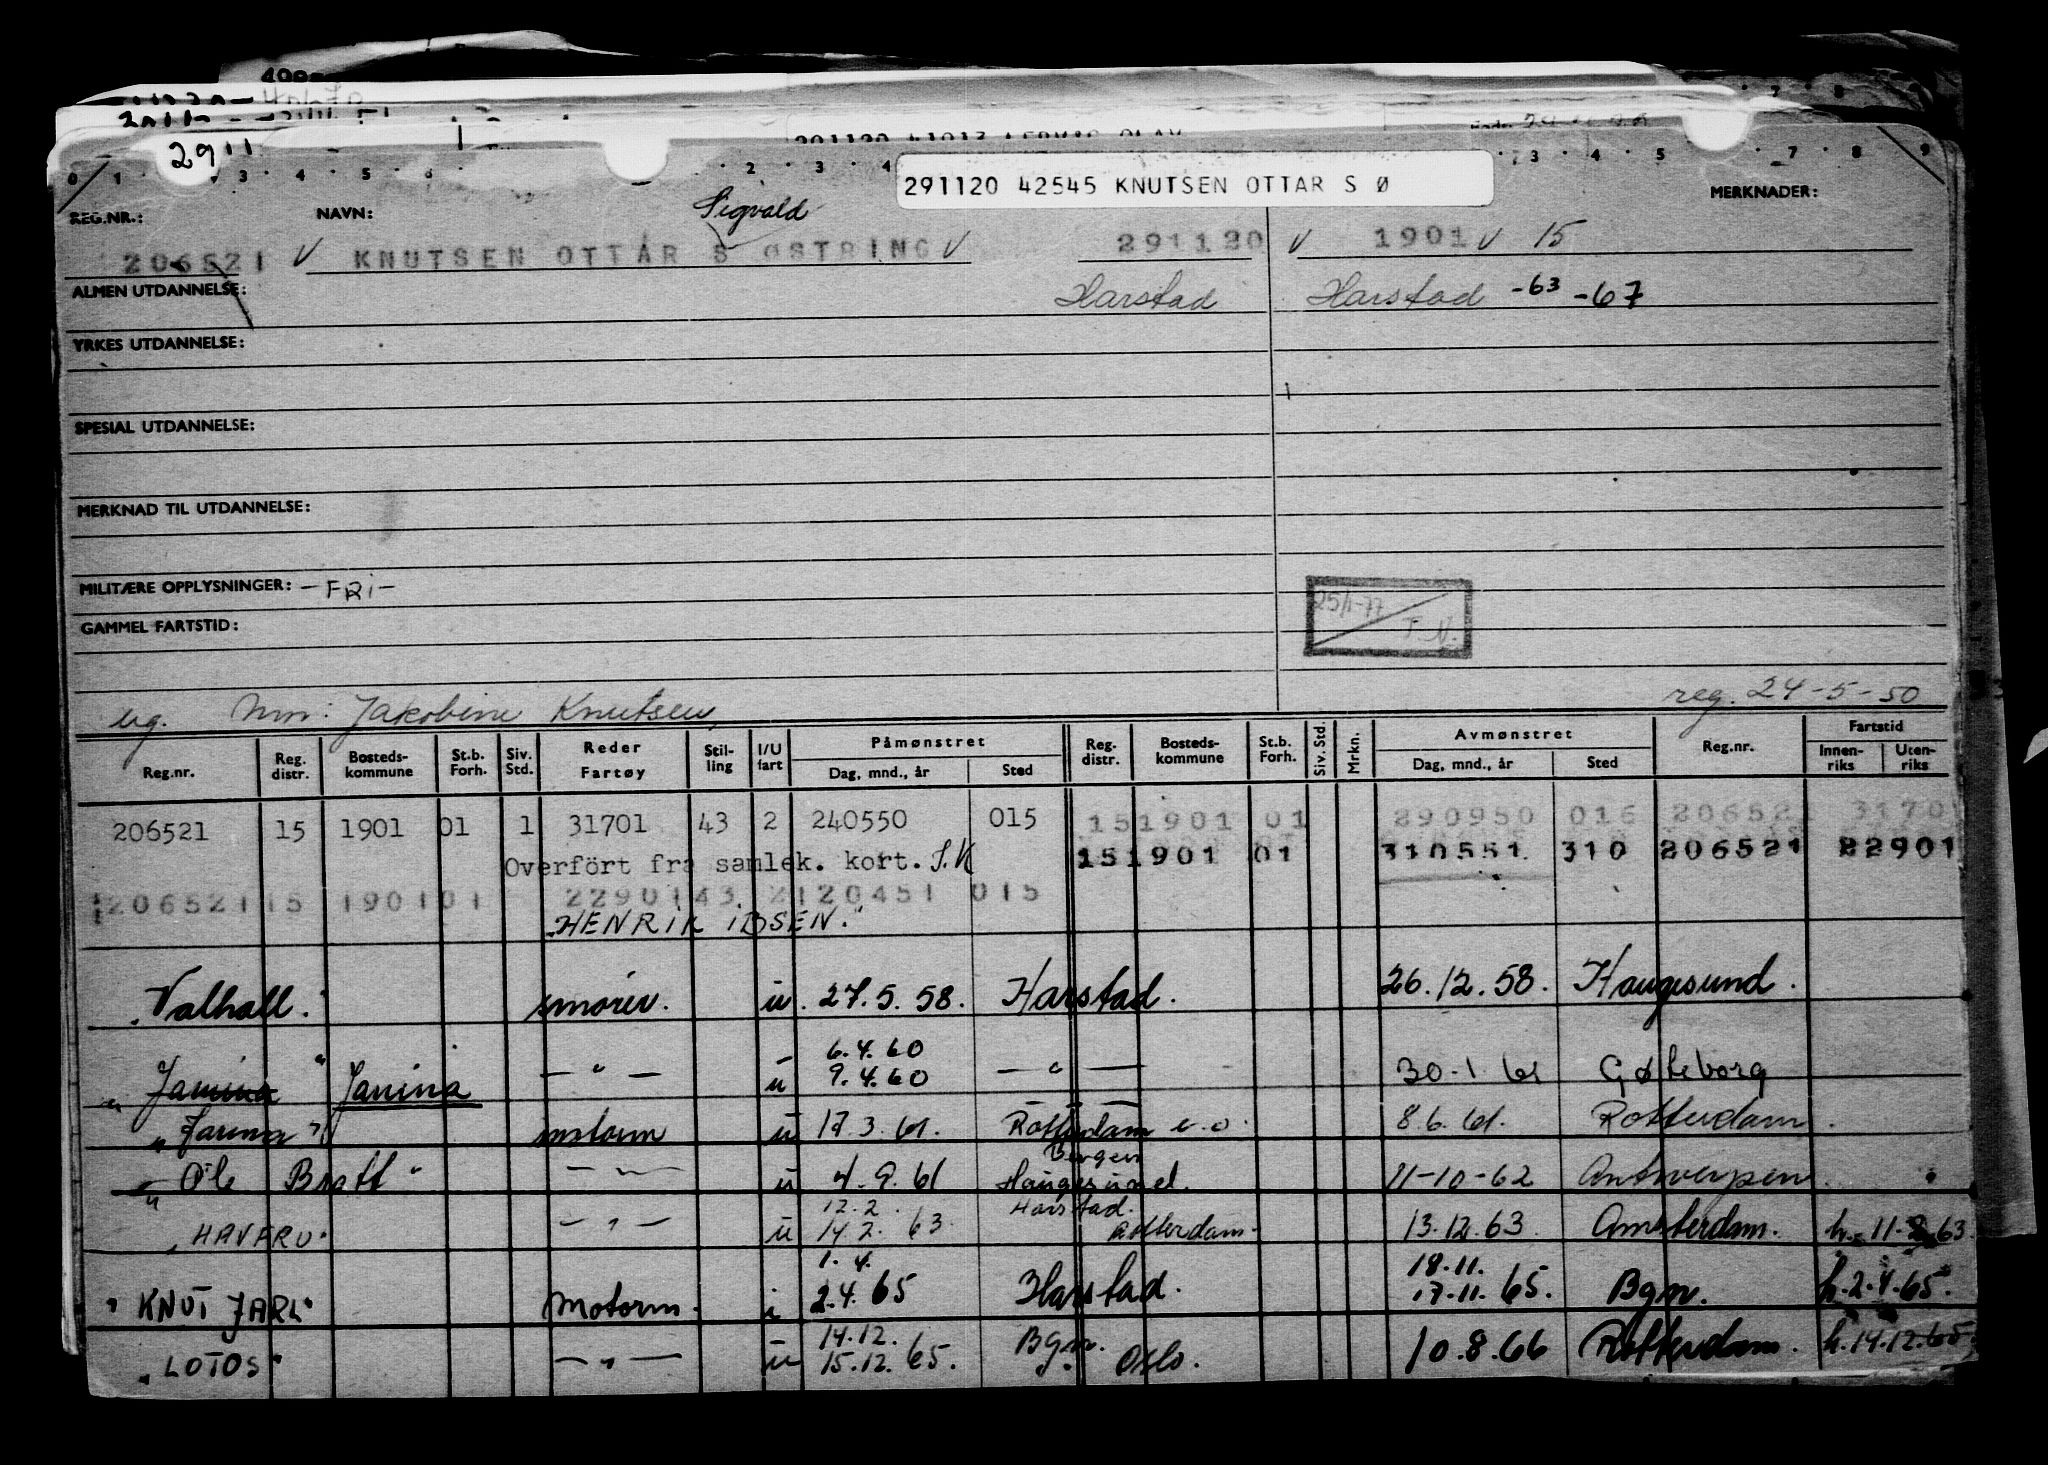 2911
291120 42545 KNUTSEN OTTAR S Ø
MERKNADER:
REG.NR.: NAVN: Sigvald
206521 V KNUTSEN OTTAR S ØSTRING V 291120 V 1901 V 15
ALMEN UTDANNELSE: Harstad Harstad -63 -67
YRKES UTDANNELSE:
SPESIAL UTDANNELSE:
MERKNAD TIL UTDANNELSE:
MILITÆRE OPPLYSNINGER: - FRI -
25/1-77
T.N.
GAMMEL FARTSTID:
ug. Mm: Jakobine Knutsen, reg. 24-5-50
Reg.nr. Reg. distr. Bosteds-kommune St.b. Forh. Siv. Std. Reder Fartøy Stil-ling I/U fart Påmønstret Dag, mnd., år Sted Reg. distr. Bosteds-kommune St.b. Forh. Siv. Std. Mrkn. Avmønstret Dag, mnd., år Sted Reg.nr. Fartstid Innen-riks Uten-riks
206521 15 1901 01 1 31701 43 2 240550 015 151901 01 290950 016 206521 31701
Overfört fra samlek. kort. S.K 151901 01 310551 310 206521 22901
206521 15 1901 01 22901 43 2 120451 015
"HENRIK IBSEN."
"Valhall." smører. u. 27.5.58. Harstad. 26.12.58. Haugesund.
6.4.60
"Janina" Janina — " — u 9.4.60 — " — 30.1 61 Gøteborg
"Janina" mstorm u 17.3.61. Rotterdam e.o. 8.6.61. Rotterdam.
Bergen
"Ole Bratt" — " — u 4.9.61 Haugesund. 11-10-62 Antwerpen.
12.2. Harstad.
"HAVFRU" — " — u 14.2.63 Rotterdam. 13.12.63. Amsterdam. h. 11.2.63
1.4. 18.11.
"KNUT JARL" Motorm. i 2.4.65 Harstad. 17.11.65. Bgn. h.2.4.65.
14.12. Bgn.
"LOTOS" — " — u 15.12.65. Oslo. 10.8.66 Rotterdam. h.14.12.65